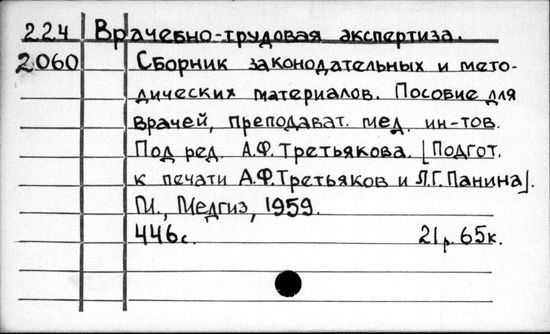 224 Врачебно-трудовая экспертиза.
2060 Сборник законодательных и мето-
дических материалов. Пособие для
врачей, преподават. мед. ин-тов.
Под ред. А.Ф.Третьякова. [Подгот.
к печати А.Ф.Третьяков и Л.Г.Панина].
М., Медгиз, 1959.
446с. 21р. 65к.